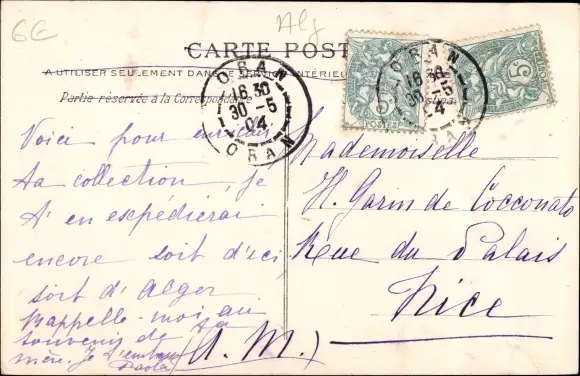 6E
Alg
CARTE POST
A UTILISER SEULEMENT DANS LE SERVICE INTÉRIEUR
Partie réservée à la Correspondance
ORAN
16 30
30 -5
04
ORAN
ORAN
16 30
30 -5
04
5
Voici pour enrichir
ta collection, je
t'en expédierai
encore soit d'ici,
soit d'Alger
Rappelle-moi au
souvenir de ta
mère. Je t'embrasse
(A. M.)
Mademoiselle
H. Garin de Cocconato
Rue du Palais
Nice